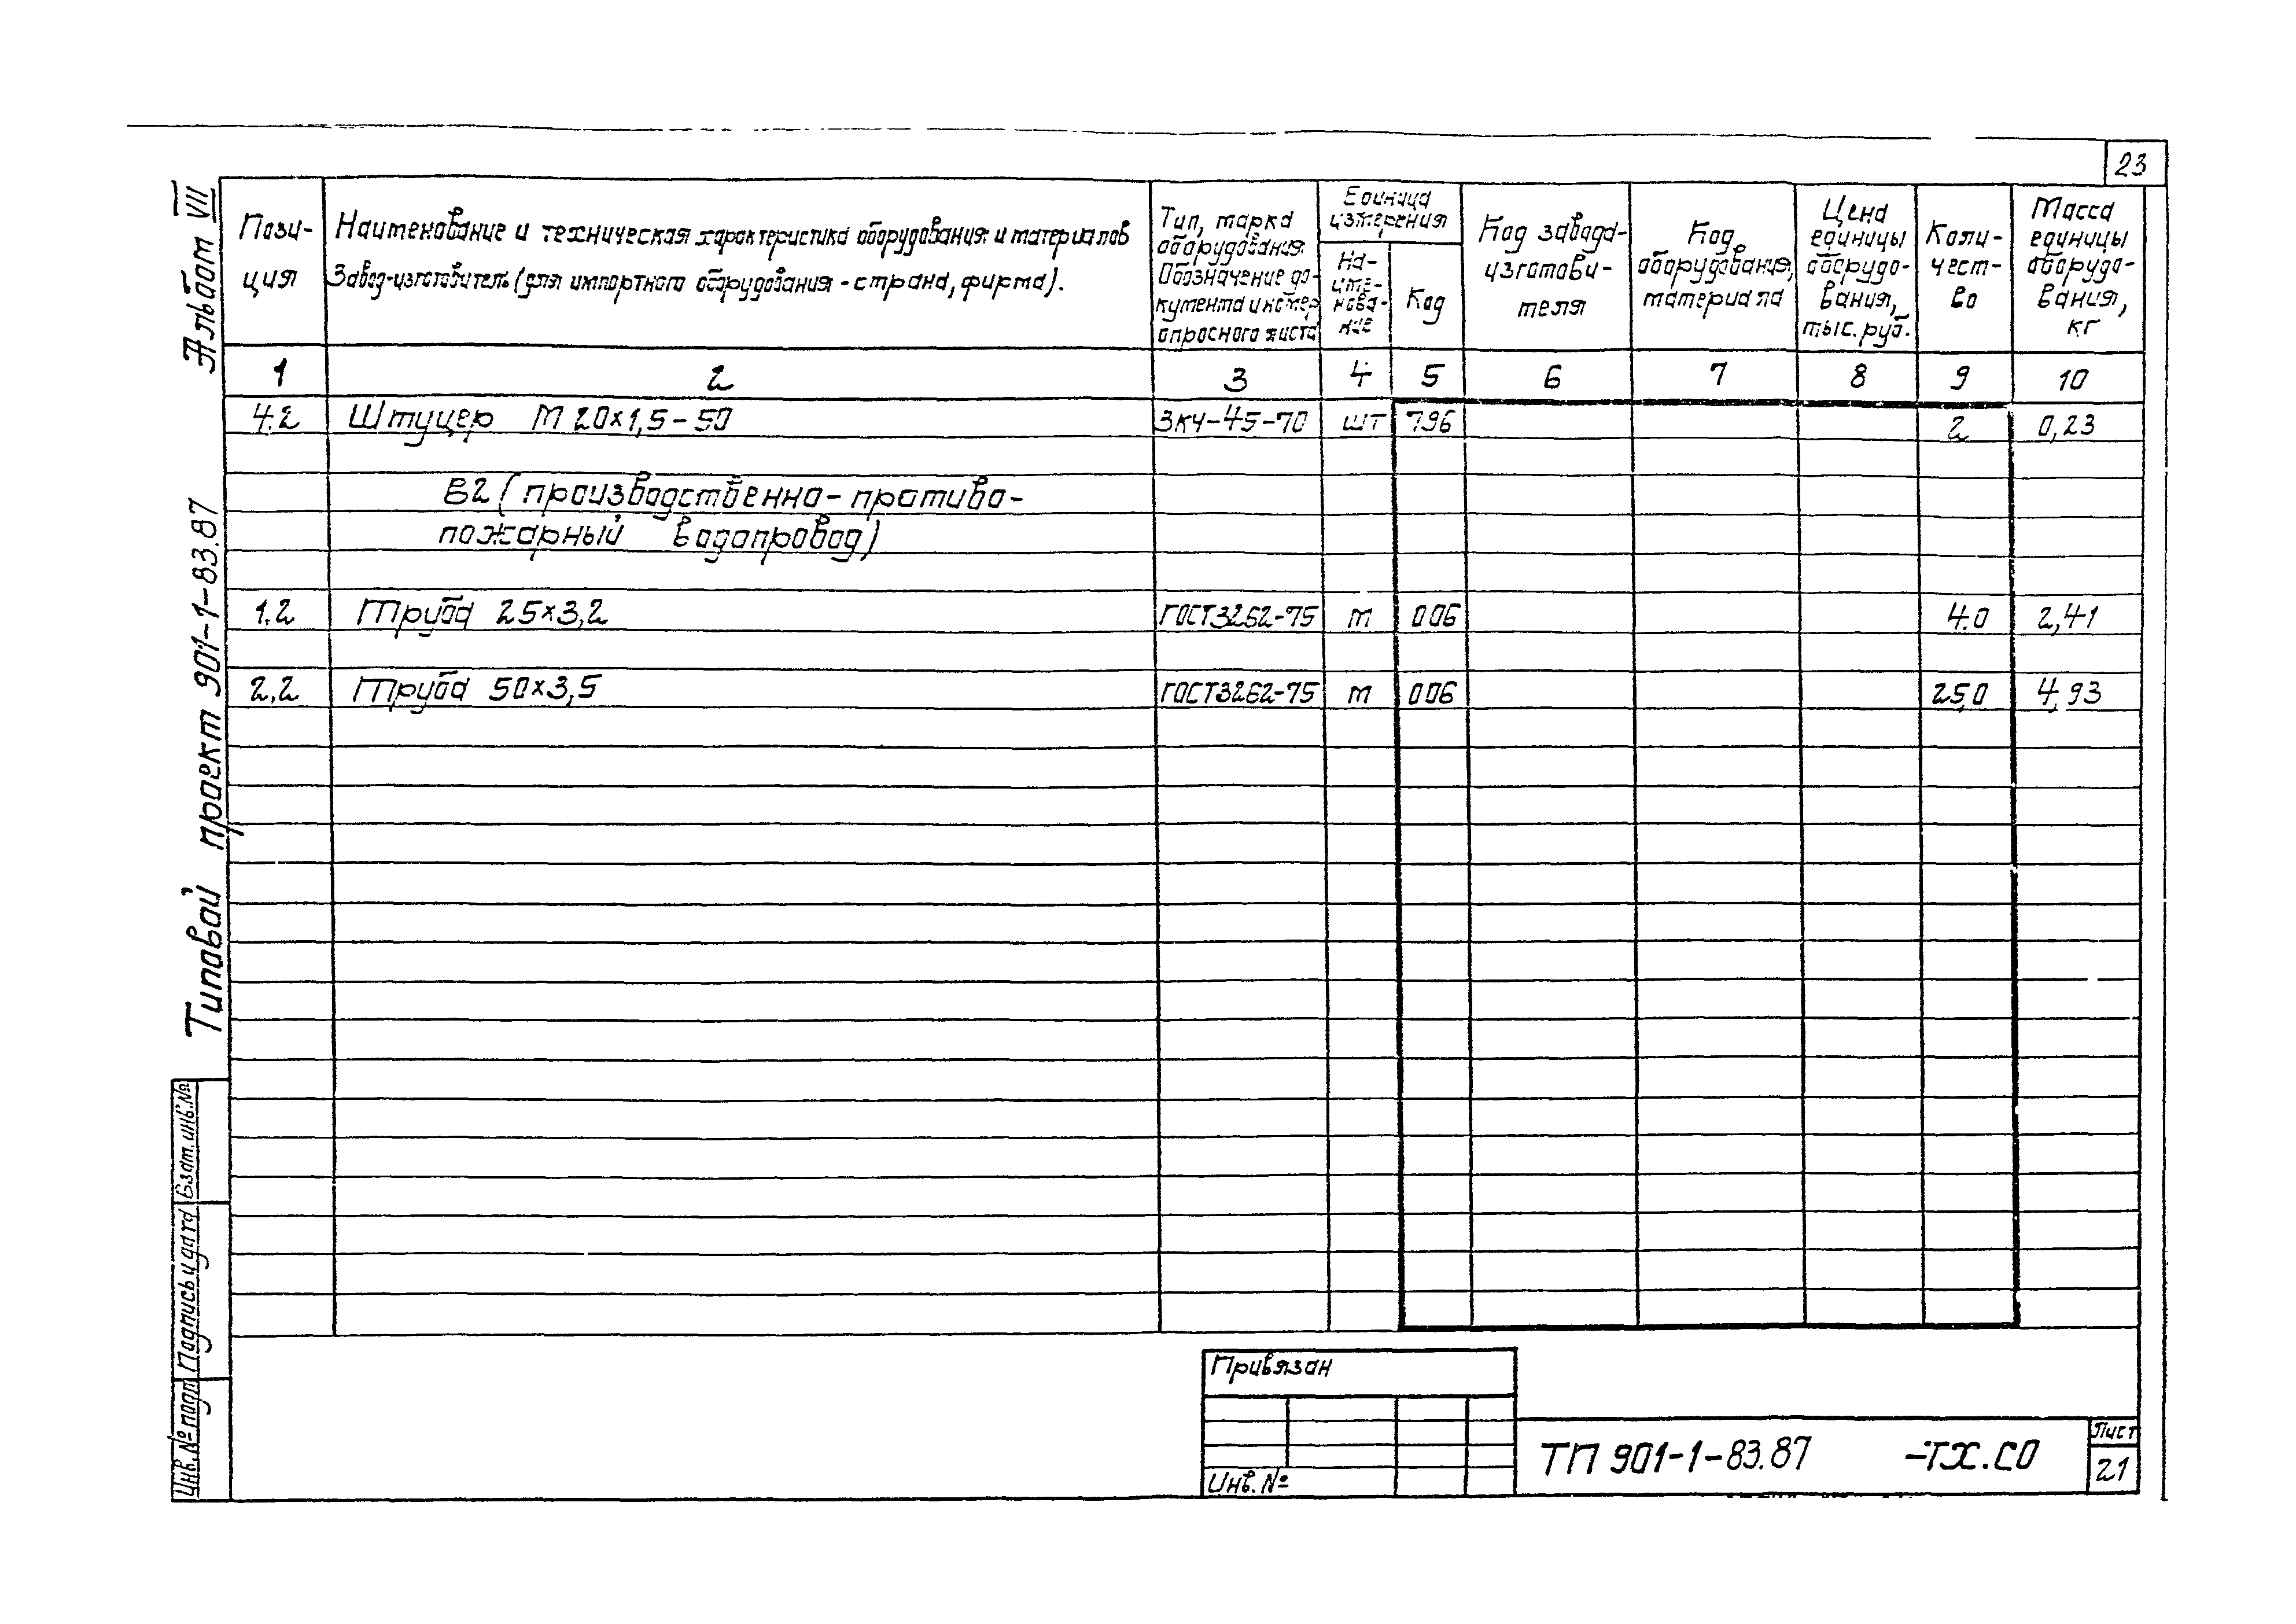 23
Альбом VII
Типовой проект 901-1-83.87
Пози-
ция
Наименование и техническая характеристика оборудования и материалов
Завод-изготовитель (для импортного оборудования - страна, фирма).
Тип, марка
оборудования.
Обозначение до-
кумента и номер
опросного листа
Единица
измерения
На-
име-
нова-
ние
Код
Код завода-
изготови-
теля
Код
оборудования,
материала
Цена
единицы
оборудо-
вания,
тыс. руб.
Коли-
чест-
во
Масса
единицы
оборудо-
вания,
кг
1 2 3 4 5 6 7 8 9 10
4.2 Штуцер М 20×1,5-50 ЗКЧ-45-70 шт 796 2 0,23
В2 (производственно-противо-
пожарный водопровод)
1.2 Труба 25×3,2 ГОСТ3262-75 м 006 4.0 2,41
2.2 Труба 50×3,5 ГОСТ3262-75 м 006 25,0 4,93
Взам. инв. №
Подпись и дата
Инв. № подл
Привязан
Инв. №
ТП 901-1-83.87 -ТХ.СО
Лист
21